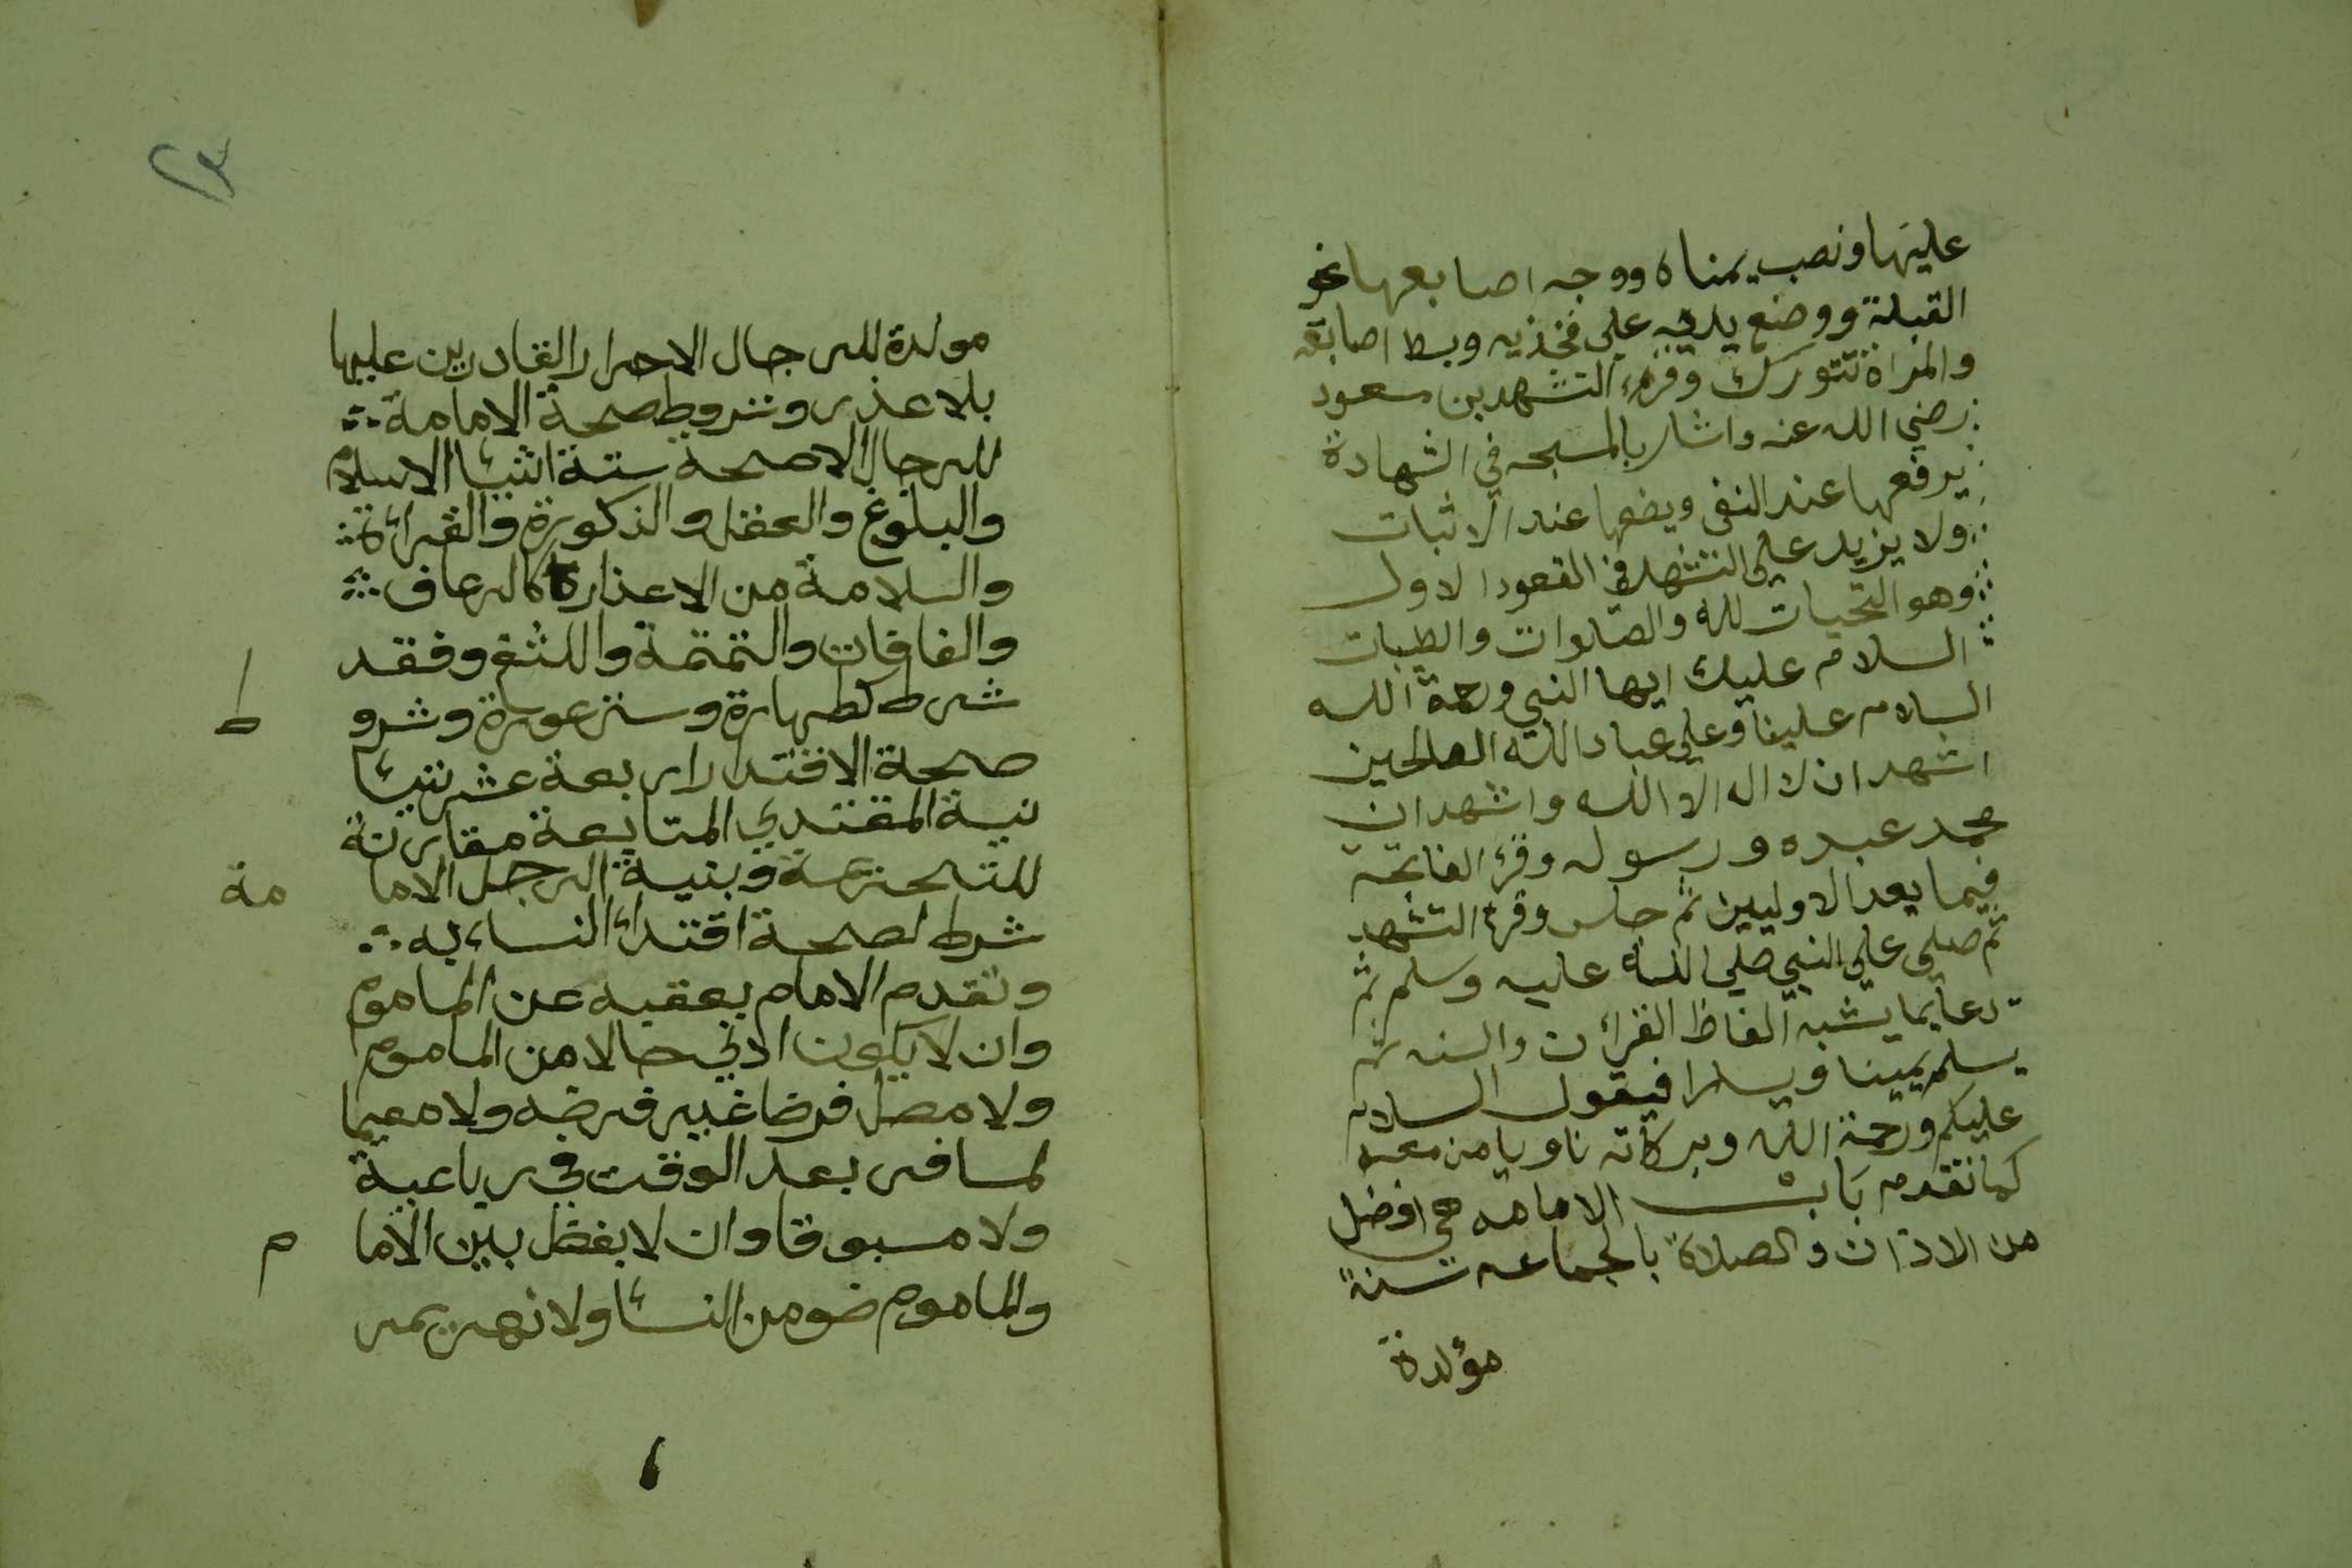 عليها ونصب يمناه ووجه اصابعها نحو
القبلة ووضع يديه علي فخذيه وبسط اصابعه
والمراة تتورك وقرء التشهد بن مسعود
رضي الله عنه واشار بالمسبحه في الشهادة
يرفعها عند النفي ويضعها عند الاثبات
ولا يزيد علي التشهد في القعود الاول
وهو التحيات لله والصلوات والطيبات
السلام عليك ايها النبي ورحمة الله
السلام علينا وعلي عباد الله الصالحين
اشهد ان لا اله الا الله واشهد ان
محمد عبده ورسوله وقرء الفاتحه
فيما بعد الاوليين ثم جلس وقرء التشهد
ثم صلي علي النبي صلي الله عليه وسلم ثم
دعا بما يشبه الفاظ القرأن والسنه ثم
يسلم يمينا ويسارا فيقول السلام
عليكم ورحمة الله وبركاته ناويا من معه
كما تقدم باب الامامه هي افضل
من الاذان والصلاة بالجماعه سنة
مؤكدة
٢٣
موكدة للرجال الاحرار القادرين عليها
بلا عذر وشروط صحة الامامة
للرجال الاصحة ستة اشيئا الاسلام
والبلوغ والعقل والذكورة والقرائة
والسلامة من الاعذار كالرعاف
والفافات والتمتمة واللثغ وفقد
شرط كطهارة وستر عورة وشرو ط
صحة الاقتدا اربعة عشر شيئا
نية المقتدي المتابعة مقارنة
للتحريمة ونية الرجل الاما مة
شرط لصحة اقتداء النساء به
وتقدم الامام بعقبه عن الماموم
وان لا يكون ادني حالا من الماموم
ولا مصل فرضا غير فرضه ولا مقيما
لمسافر بعد الوقت في رباعية
ولا مسبوقا وان لا يفصل بين الاما م
والماموم صف من النسا ولا نهر يمر